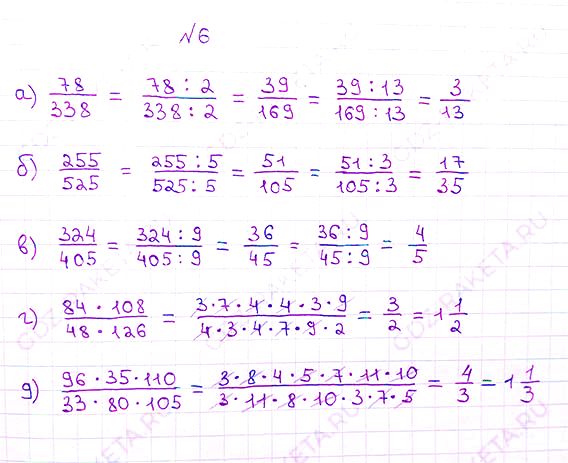 №6
а) 78/338 = 78 : 2/338 : 2 = 39/169 = 39 : 13/169 : 13 = 3/13
б) 255/525 = 255 : 5/525 : 5 = 51/105 = 51 : 3/105 : 3 = 17/35
в) 324/405 = 324 : 9/405 : 9 = 36/45 = 36 : 9/45 : 9 = 4/5
г) 84 · 108/48 · 126 = 3 · 7 · 4 · 4 · 3 · 9/4 · 3 · 4 · 7 · 9 · 2 = 3/2 = 1 1/2
д) 96 · 35 · 110/33 · 80 · 105 = 3 · 8 · 4 · 5 · 7 · 11 · 10/3 · 11 · 8 · 10 · 3 · 7 · 5 = 4/3 = 1 1/3
GDZ-RAKETA.RU